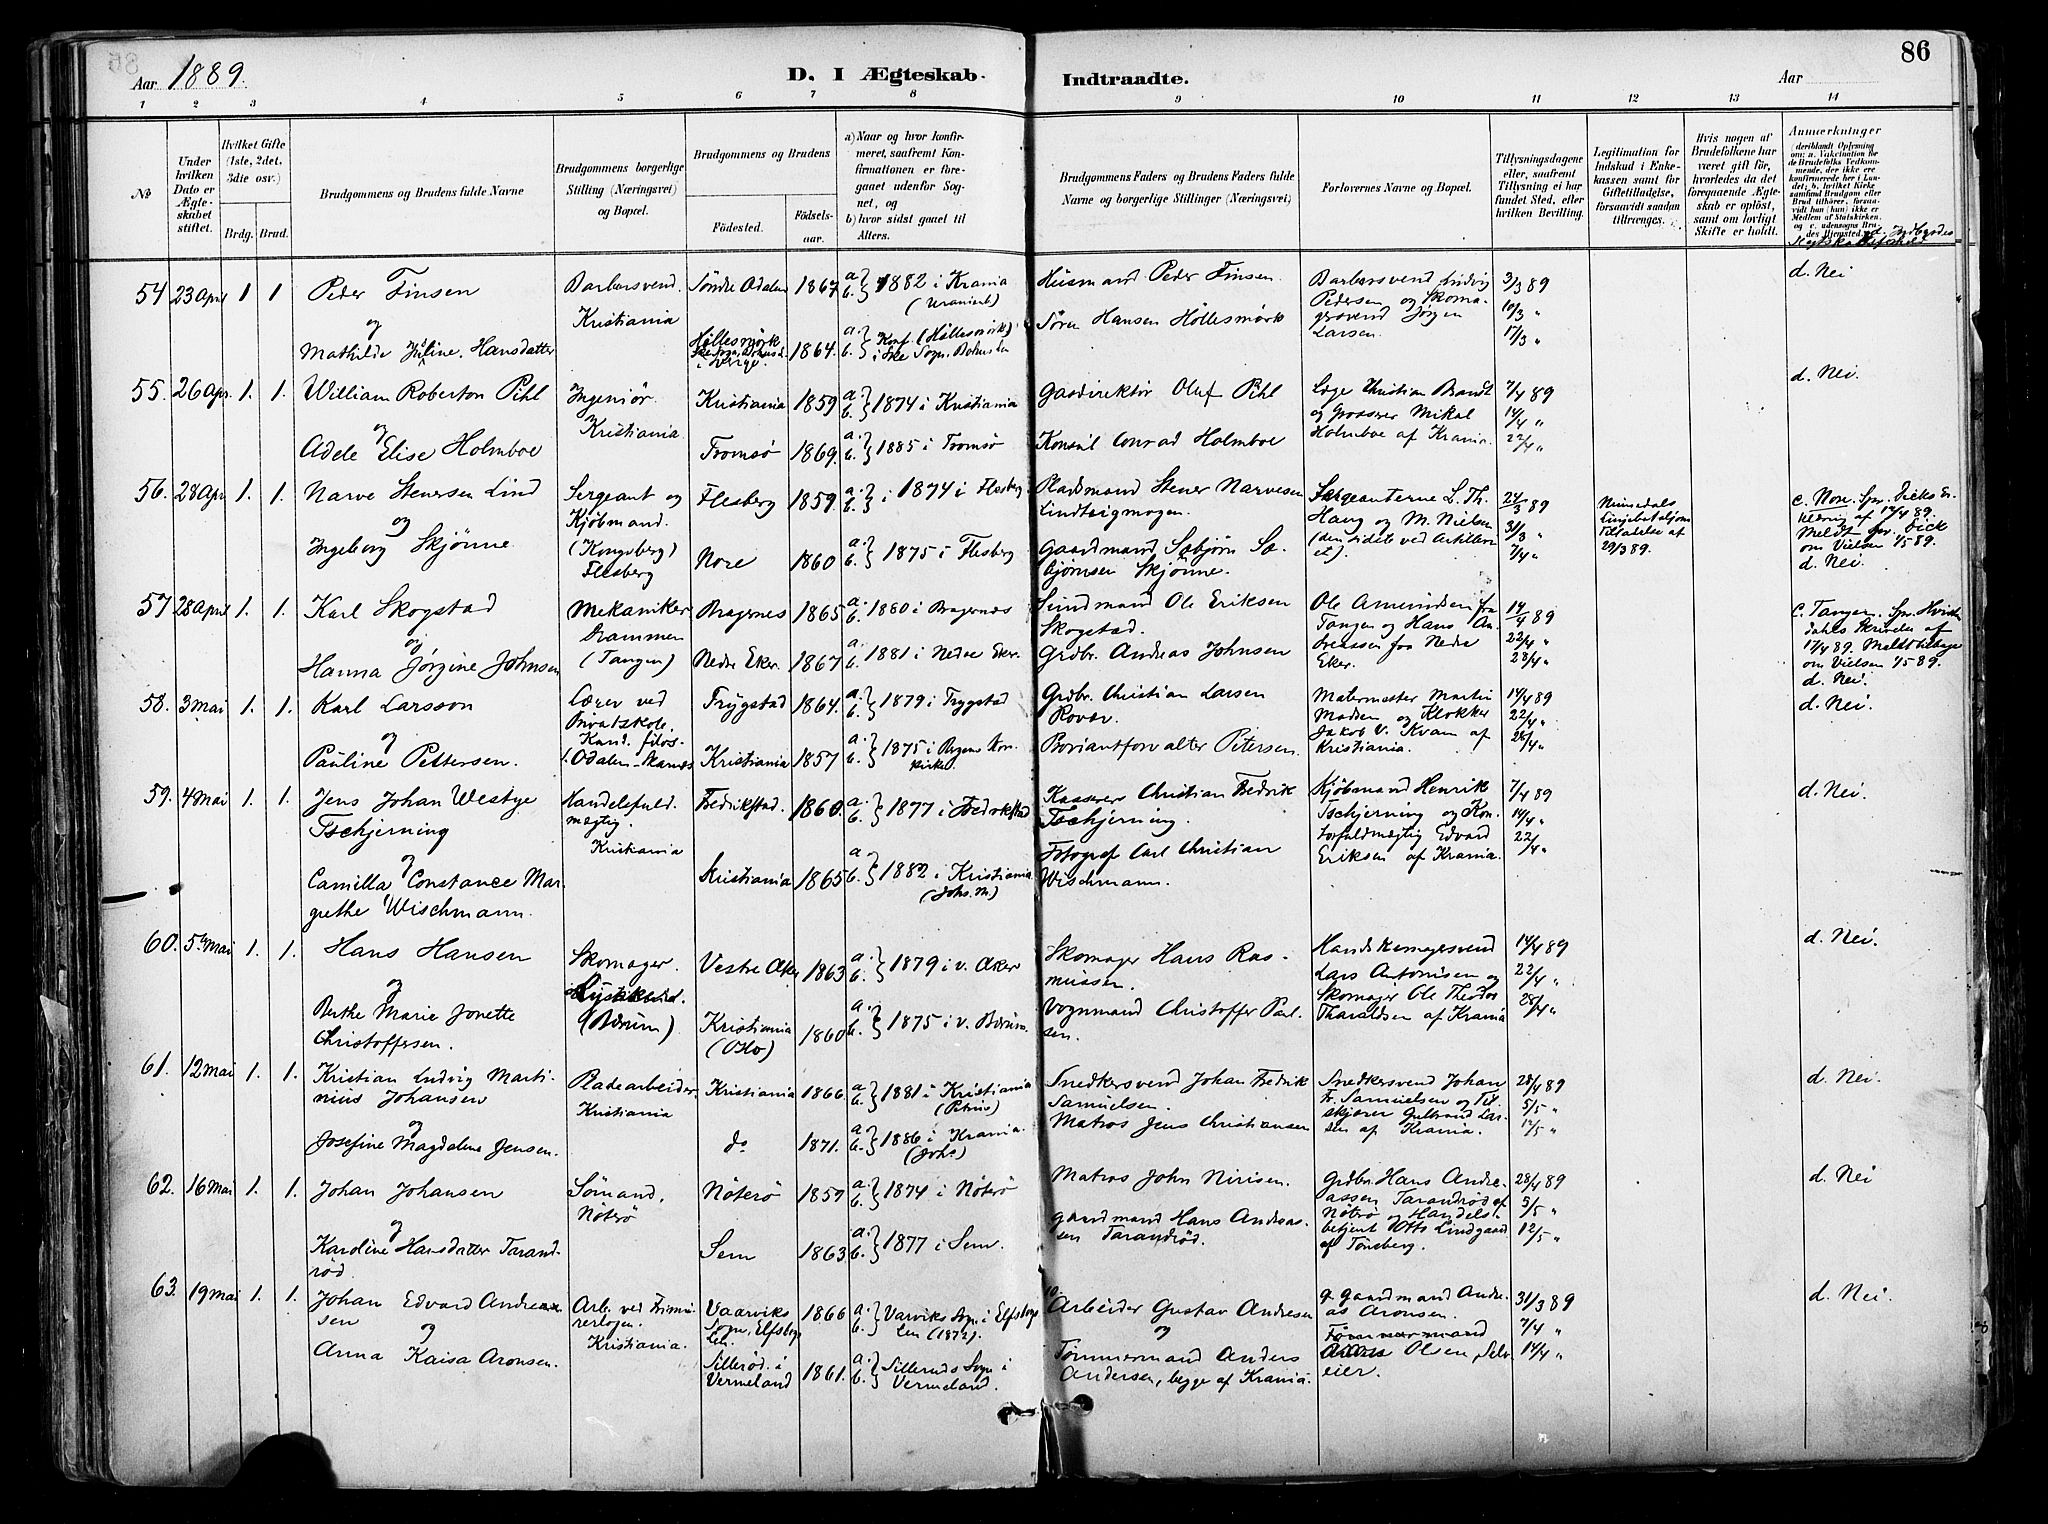 86
Aar 1889.
D. I Ægteskab Indtraadte.
Aar
1 2 3 4 5 6 7 8 9 10 11 12 13 14
No
Under hvilken Dato er Ægteskabet stiftet.
Hvilket Gifte (1ste, 2det, 3die osv.)
Brdg. Brud.
Brudgommens og Brudens fulde Navne
Brudgommens borgerlige Stilling (Næringsvei) og Bopæl.
Brudgommens og Brudens
Födested.
Födselsaar.
a) Naar og hvor konfirmeret, saafremt Konfirmationen er foregaaet udenfor Sognet, og
b) hvor sidst gaaet til Alters.
Brudgommens Faders og Brudens Faders fulde Navne og borgerlige Stillinger (Næringsvei)
Forlovernes Navne og Bopæl.
Tillysningsdagene eller, saafremt Tillysning ei har fundet Sted, efter hvilken Bevilling.
Legitimation for Indskud i Enkekassen samt for Giftetilladelse, forsaavidt saadan tiltrænges.
Hvis nogen af Brudefolkene har været gift før, hvorledes da det foregaaende Ægteskab er oplöst, samt om lovligt Skifte er holdt.
Anmerkninger (deriblandt Oplysning om: a. Vaccination for de Brudefolks Vedkommende, der ikke ere konfirmerede her i Landet; b. hvilket Kirkesamfund Brudgom eller Brud tilhører, forsaavidt han (hun) ikke er Medlem af Statskirken, og c. udensogns Brudes Hjemsted.
54 23 April 1 1 Peder Finsen
og
Mathilde Juline Hansdatter
Barbersvend. Kristiania
Søndre Odalen 1867 a. b. 1882 i Krania (Uranienb)
Høllesmörk 1864. a. b. Konf. (Höllesmörk) i Ske Sogn, Bohuslen
Husmand Peder Finsen.
Sören Hansen Höllesmörk
Barbersvend Ludvig Pedersen og Skomagersvend Jörgen Larsen.
3/3 89
10/3 "
17/3 "
d. Nei
55. 26 Apr. 1. 1. William Roberton Pihl
og
Adele Elise Holmboe
Ingeniör. Kristiania.
Kristiania 1859 a. b. 1874 i Kristiania
Tromsø 1869. a. b. 1885 i Tromsø
Gasdirektör Oluf Pihl
Konsul Conrad Holmboe
Læge Christian Brandt og Grosserer Mikal Holmboe af Krania.
7/4 89
14/4 "
22/4 "
d. Nei.
56. 28 Apr 1. 1. Narve Stenersen Lind
og
Ingeborg Skjønne.
Sergeant og Kjøbmand. (Kongsberg) Flesberg
Flesberg 1859. a. b. 1874 i Flesberg
Nore 1860 a. b. 1875 i Flesberg
Pladsmand Stener Narvesen Lindtvigmogen.
Gaardmand Sæbjörn Sæbjørnsen Skjønne.
Sergeanterne L. Th. Haug og M. Nielsen (den sidste ved Artilleriet).
24/3 89
31/3 "
7/4 "
Numedals Linjebataljons Tilladelse af 29/3 89.
c. Nore. Spr. Dicks Erklæring af 14/4 89. Meldt Spr. Dick om Vielsen 1/5 89.
d. Nei.
57 28 April 1. 1. Karl Skogstad
og
Hanna Jörgine Johnsen
Mekaniker Drammen (Tangen)
Bragernes 1865 a. b. 1880 i Bragernæs
Nedre Eker. 1867 a. b. 1881 i Nedre Eker.
Sundmand Ole Eriksen Skogstad.
Grdbr. Andreas Johnsen
Ole Amundsen fra Tangen og Hans Andreassen fra Nedre Eker.
14/4 89
22/4 "
28/4 "
C. Tangen. Spr. Skrivelse af 17/4 89. Meldt tilbage om Vielsen 1/5 89.
d. Nei.
58. 3 Mai 1. 1. Karl Larsson
og
Pauline Pettersen.
Lærer ved Privatskole, Kand. filos. Odalen Skarnæs
Trygstad 1864. a. b. 1879 i Trygstad
Kristiania 1857 a. b. 1875 i
Grdbr. Christian Larsen Rovær.
Petersen.
Matermester Martin Madsen og Klokker Jakob V. Kvam af Kristiania.
14/4 89
22/4 "
28/4 "
d. Nei.
59. 4 Mai 1. 1. Jens Johan Westye Tschjerning
og
Camilla Constance Margrethe Wischmann.
Handelsfuldmægtig. Kristiania
Fredrikstad. 1860. a. b. 1877 i Fredrikstad
Kristiania 1865 a b. 1882 i Kristiania (Johs. M.)
Kasserer Christian Fredrik Tschjerning.
Fotograf Carl Christian Wischmann.
Kjöbmand Henrik Tschjerning og Kontorfuldmægtig Edvard Eriksen af Krania.
7/4 89
14/4 "
22/4 "
d. Nei.
60. 5te Mai 1. 1. Hans Hansen
og
Berthe Marie Jonette Christoffersen.
Skomager. (Bærum)
Vestre Aker 1863 a. b. 1879 i v. Aker
Kristiania (Oslo) 1860 a. b. 1875 i v. Bærum
Skomager Hans Rasmussen.
Vognmand Christoffer Paulsen.
Handskemagersvend Lars Antonisen og Skomager Ole Theodor Tharaldsen af Krania
14/4 89
22/4 "
28/4 "
d. Nei.
61. 12 Mai 1. 1. Kristian Ludvig Martinius Johansen
og
Josefine Magdalene Jensen.
Pladearbeider. Kristiania
Kristiania 1866 a. b. 1881 i Kristiania (Petrus)
do 1871. a. b. 1886 i Krania. (Johs)
Snedkersvend Johan Fredrik Samuelsen.
Matros Jens Christiansen
Snedkersvend Johan Fr. Samuelsen og Tilskjærer Gulbrand Larsen af Krania.
28/4 89
5/5 "
12/5 "
d. Nei.
62. 16 Mai 1. 1. Johan Johansen
og
Karoline Hansdatter Tarandröd.
Sömand, Nöterö
Nöterö 1859 a. b. 1874 i Nöterö
Sem 1863 a. b. 1877 i Sem.
Matros John Nirisen.
Gaardmand Hans Andreassen Tarandröd.
Grdbr. Hans Andreassen Tarandröd af Nöterö og Handelsbetjent Otto Lindgaard af Tönsberg.
28/4 89
5/5 "
12/5 "
d. Nei
63. 19 Mai 1. 1. Johan Edvard Andreasen
og
Anna Kaisa Aronsen.
Arb. ved Kristiania.
Vaarviks Sogn, Elfsborgs Len. 1866 a. b. Varviks Sogn i Elfsborgs Len (1872).
Sillerød i Vermeland 1861. a. b. Silleruds Sogn i Vermeland.
Arbeider Gustav Andresen
og
Tømmermand Anders Andersen, begge af Krania.
g. Gaardmand Andreas Aronsen.
Olsen, Selveier.
31/3 89
7/4 "
14/4 "
d. Nei.